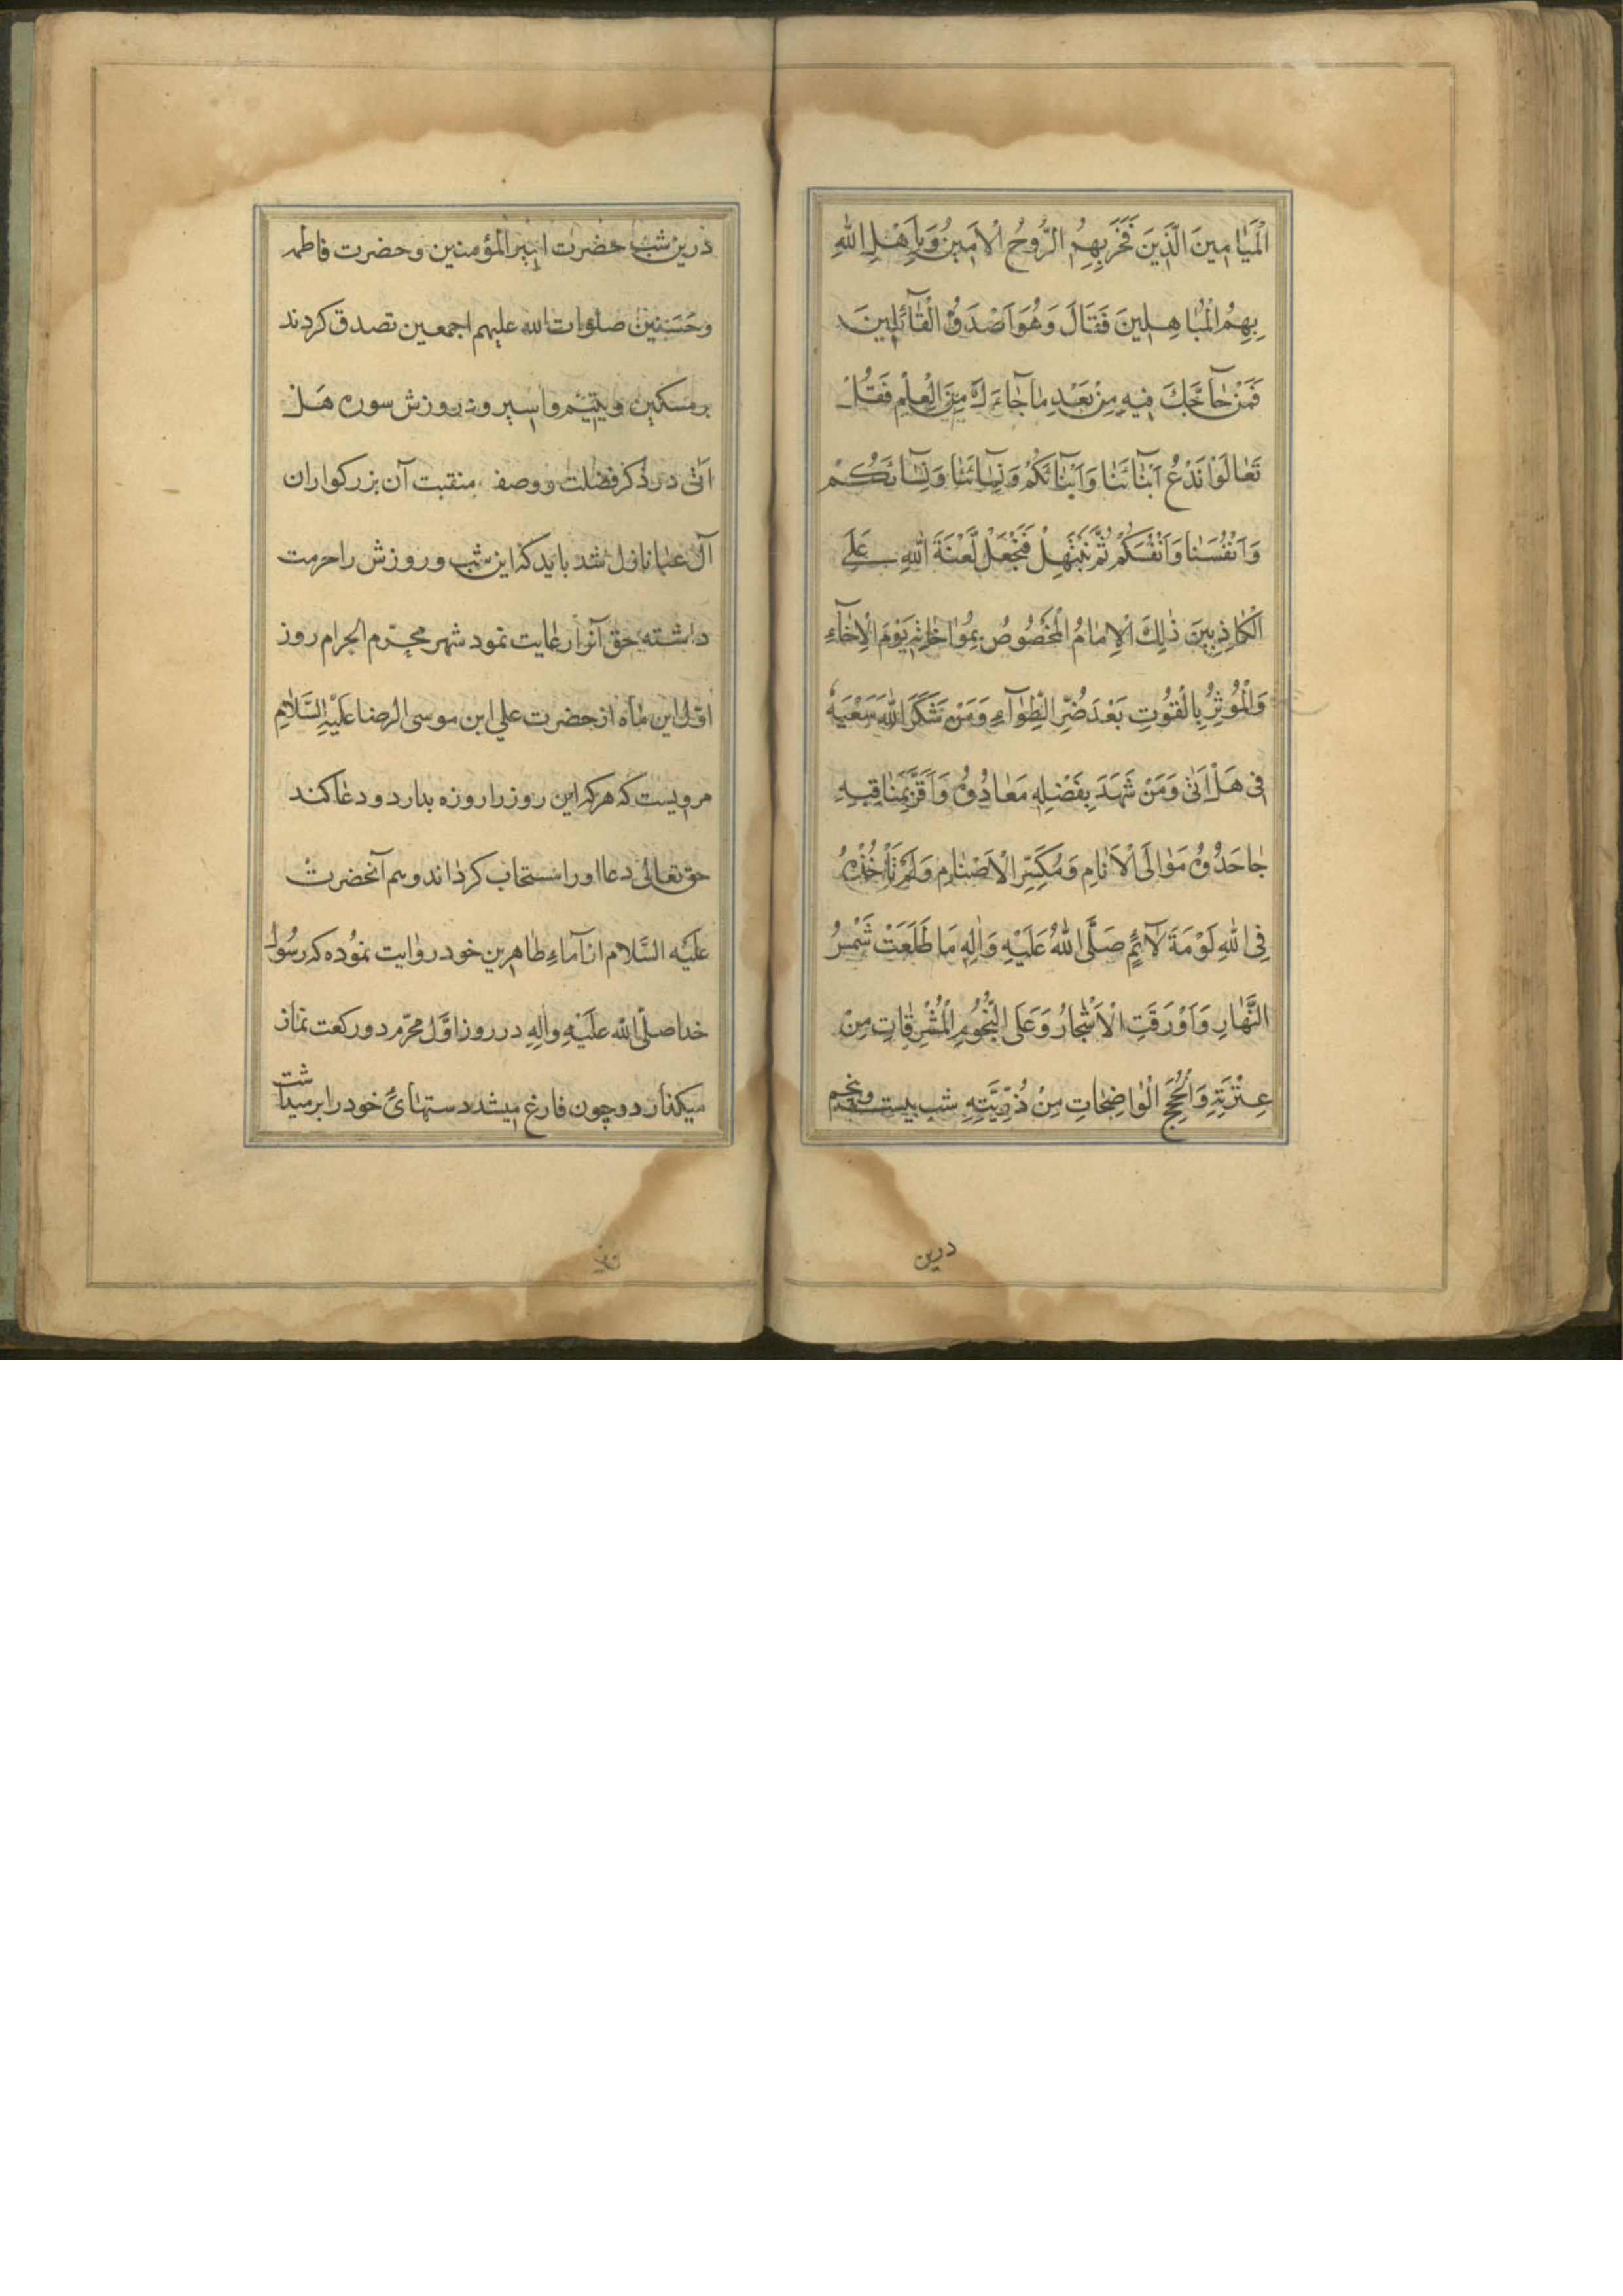 الْمَيَامِينَ الَّذِينَ فَخَرَ بِهِمُ الرُّوحُ الْاَمِينُ وَبَاهَلَ اللّٰهُ
بِهِمُ الْمُبَاهِلِينَ فَقَالَ وَهُوَ اَصْدَقُ الْقَآئِلِينَ
فَمَنْ حَآجَّكَ فِيهِ مِنْ بَعْدِ مَا جَآءَكَ مِنَ الْعِلْمِ فَقُلْ
تَعَالَوْا نَدْعُ اَبْنَآئَنَا وَاَبْنَآئَكُمْ وَنِسَآئَنَا وَنِسَآئَكُمْ
وَاَنْفُسَنَا وَاَنْفُسَكُمْ ثُمَّ نَبْتَهِلْ فَنَجْعَلْ لَعْنَةَ اللّٰهِ عَلَى
الْكَاذِبِينَ ذٰلِكَ الْاِمَامُ الْمَخْصُوصُ بِمُوَاخَاتِهِ يَوْمَ الْاِخَآءِ
وَالْمُوثِرُ بِالْقُوتِ بَعْدَ ضُرِّ الطِّوَآءِ وَمَنْ شَكَرَ اللّٰهُ سَعْيَهُ
فِى هَلْ اَتٰى وَمَنْ شَهِدَ بِفَضْلِهِ مَعَادُوهُ وَاَقَرَّ بِمَنَاقِبِهِ
جَاحِدُوهُ مَوْلَى الْاَنَامِ وَمُكَسِّرِ الْاَصْنَامِ وَلَمْ تَأْخُذْهُ
فِى اللّٰهِ لَوْمَةَ لَآئِمٍ صَلَّى اللّٰهُ عَلَيْهِ وَاٰلِهِ مَا طَلَعَتْ شَمْسُ
النَّهَارِ وَاَوْرَقَتِ الْاَشْجَارُ وَعَلَى النُّجُومِ الْمُشْرِقَاتِ مِنْ
عِتْرَتِهِ وَالْحُجَجِ الْوَاضِحَاتِ مِنْ ذُرِّيَّتِهِ شب بیست وپنجم
درین
درین شب حضرت امیر المؤمنین وحضرت فاطمه
وحَسَنین صلوات الله علیهم اجمعین تصدق کردند
بر مسکین ویتیم واسیر ودر روزش سوره هَل
اَتٰی در ذکر فضلت ووصف منقبت آن بزرکواران
آل عبا نازل شد باید که این شب وروزش را حرمت
داشته حق آنرا رعایت نمود شهر محرّم الحرام روز
اوّل این ماه از حضرت علي ابن موسی الرضا عَلَيْهِ السَّلَامِ
مرویست که هر که این روز را روزه بدارد ودعا کند
حق تعالی دعا اورا مستجاب کرداند وهم آنحضرت
عَلَيْه السَّلام از آباءِ طاهرین خود روایت نموُده که رسُول
خدا صلّى الله عَلَيْهِ واٰلِهِ در روز اوّل محرّم دو رکعت نماز
میکذارد وچون فارغ میشد دستهایَ خود را بر میداشت